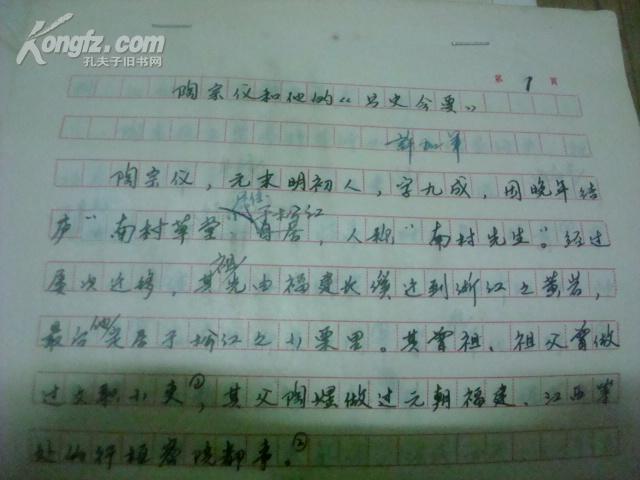 Kongfz.com
孔夫子旧书网
第 1 页
陶宗仪和他的《书史会要》
陶宗仪，元末明初人，字九成，因晚年结
庐“南村草堂 居，人称“南村先生”。经过
屡次迁移，其祖先由福建长溪迁到浙江之黄岩，
最后他 居于松江之小栗里。其曾祖、祖父曾做
过文职小吏①，其父陶煜做过元朝福建、江西等
处的行枢密院都事。②